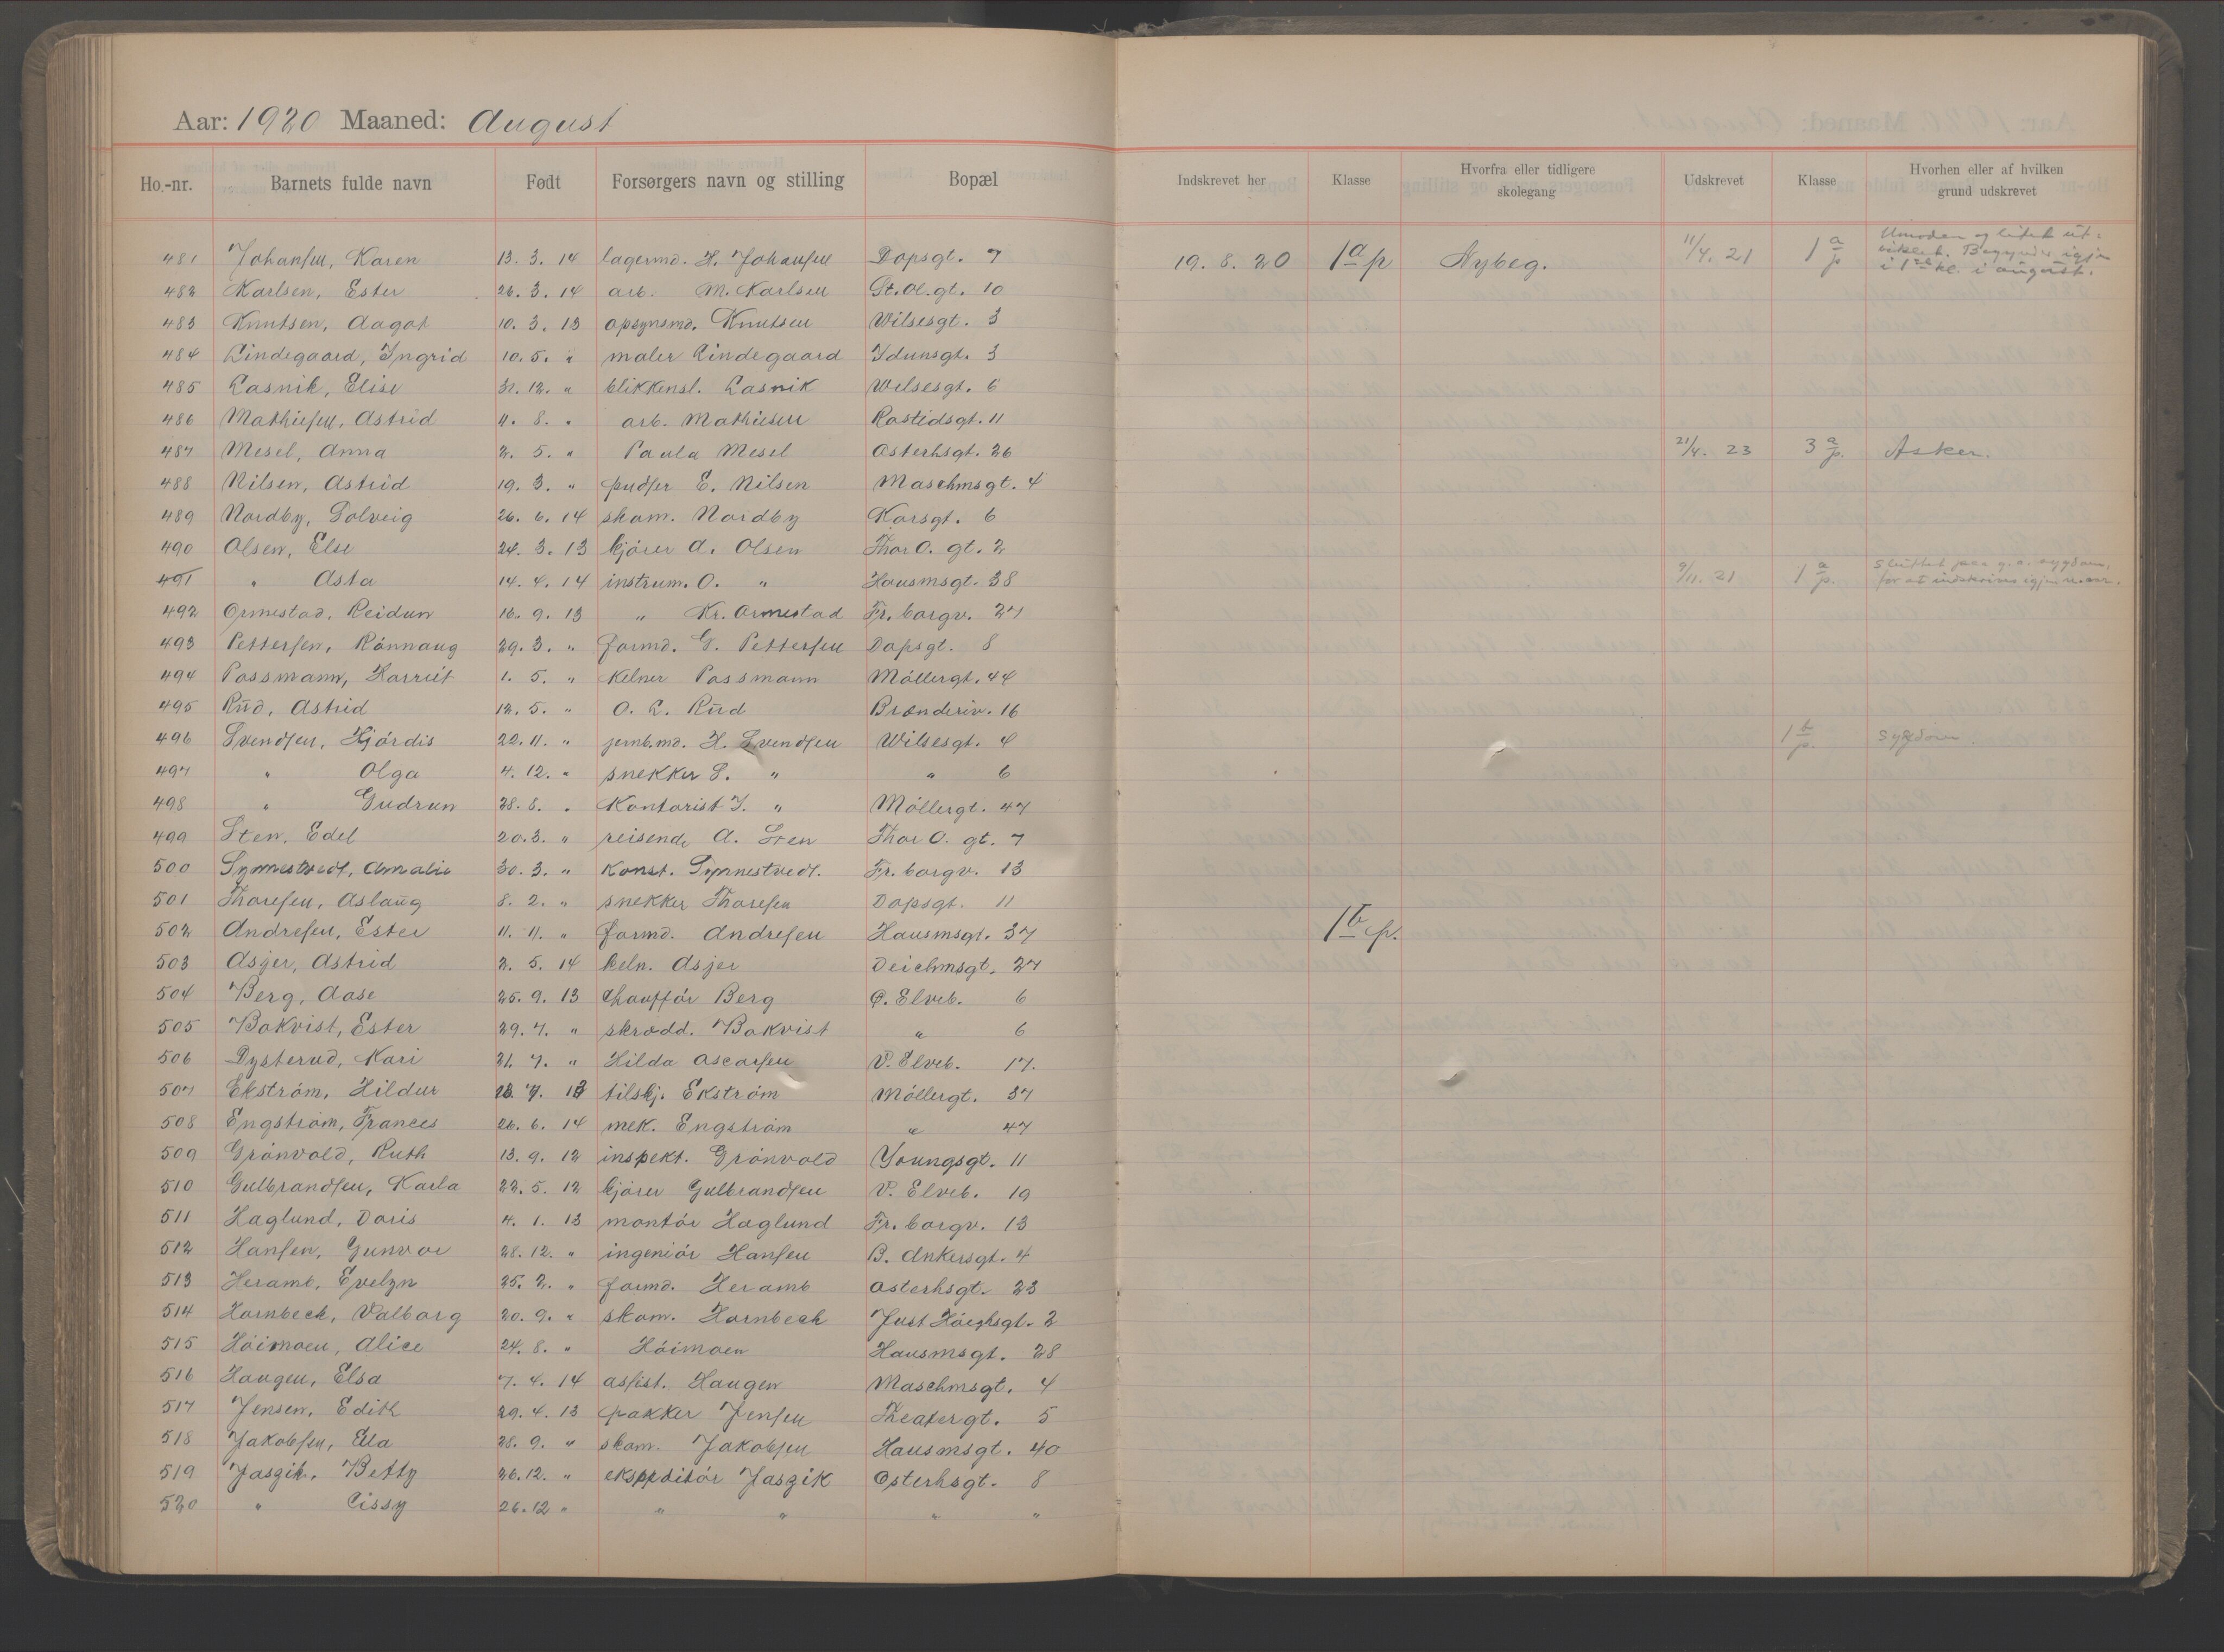 Aar: 1920 Maaned: August
Ho.-nr. Barnets fulde navn Født Forsørgers navn og stilling Bopæl Indskrevet her Klasse Hvorfra eller tidligere skolegang Udskrevet Klasse Hvorhen eller af hvilken grund udskrevet
481 Johansen, Karen 13. 3. 14 lagermd. H. Johansen Dopsgt. 7 19. 8. 20 1 a p Nybeg. 11/4. 21 1 a p Umoden og litet utviklet. Begynder igjen i 1ste kl. i august.
482 Karlsen, Ester 26. 3. 14 arb. M. Karlsen St. Ol. gt. 10
483 Knutsen, Aagot 10. 3. 13 opsynsmd. Knutsen Wilsesgt. 3
484 Lindegaard, Ingrid 10. 5. " maler Lindegaard Idunsgt. 3
485 Lasnik, Elise 31. 12. " blikkensl. Lasnik Wilsesgt. 6
486 Mathiesen, Astrid 11. 8. " arb. Mathiesen Rostedsgt. 11
487 Mesel, Anna 2. 5. " Paula Mesel Osterhsgt. 26 21/4. 23 3 a p. Asker.
488 Nilsen, Astrid 19. 3. " pudser E. Nilsen Maschmsgt. 4
489 Nordby, Solveig 26. 6. 14 skom. Nordby Korsgt. 6
490 Olsen, Else 24. 3. 13 kjører A. Olsen Thor O. gt. 2
491 " Asta 14. 4. 14 instrum. O. " Hausmsgt. 38 9/11. 21 1 a p. Sluttet paa g. a. sygdom, for at indskrives igjen
492 Ormestad, Reidun 16. 9. 13 " Kr. Ormestad Fr. borgv. 27
493 Pettersen, Rönnaug 29. 3. " formd. G. Pettersen Dopsgt. 8
494 Possmann, Harriet 1. 5. " Kelner Possmann Möllergt. 44
495 Rud, Astrid 12. 5. " O. L. Rud Brenderiv. 16
496 Svendsen, Hjördis 22. 11. " jernb.md. H. Svendsen Wilsesgt. 4 1 b p. Sygdom.
497 " Olga 4. 12. " snekker S. " " 6
498 " Gudrun 28. 8. " Kontorist J. " Möllergt. 47
499 Sten, Edel 20. 3. " reisende A. Sten Thor O. gt. 7
500 Synnestvedt, Amalie 30. 3. " Konst. Synnestvedt. Fr. borgv. 13
501 Thoresen, Aslaug 8. 2. " snekker Thoresen Dopsgt. 11
502 Andresen, Ester 11. 11. " formd. Andresen Hausmsgt. 37 1 b p.
503 Asjer, Astrid 2. 5. 14 keln. Asjer Deichmsgt. 27
504 Berg, Aase 25. 9. 13 Chaufför Berg Ø. Elveb. 6
505 Bokvist, Ester 29. 7. " skrædd. Bokvist " 6
506 Dysterud, Kari 21. 7. " Hilda Oscarsen V. Elveb. 17.
507 Ekström, Hildur 23. 7. 13 tilskj. Ekström Möllergt. 37
508 Engström, Frances 26. 6. 14 mek. Engström " 47
509 Grönvold, Ruth 13. 9. 12 inspekt. Grönvold Youngsgt. 11
510 Gulbrandsen, Karla 22. 5. 12 kjører Gulbrandsen V. Elveb. 19
511 Haglund, Doris 4. 1. 13 montör Haglund Fr. borgv. 13
512 Hansen, Gunvor 28. 12. " ingeniör Hansen B. Ankersgt. 4
513 Heramb, Evelyn 25. 2. " formd. Heramb Osterhsgt. 23
514 Hornbeck, Valborg 20. 9. " skom. Hornbeck Just Höeghsgt. 2
515 Höimoen, Alice 24. 8. " Höimoen Hausmsgt. 28
516 Haugen, Elsa 7. 4. 14 assist. Haugen Maschmsgt. 4
517 Jensen, Edith 29. 4. 13 pakker Jensen Theatergt. 5
518 Jakobsen, Ella 28. 9. " skom. Jakobsen Hausmsgt. 40
519 Jasgik, Betty 26. 12. " ekspeditör Jasgik Osterhsgt. 8
520 " Cissy 26. 12 " " " " "